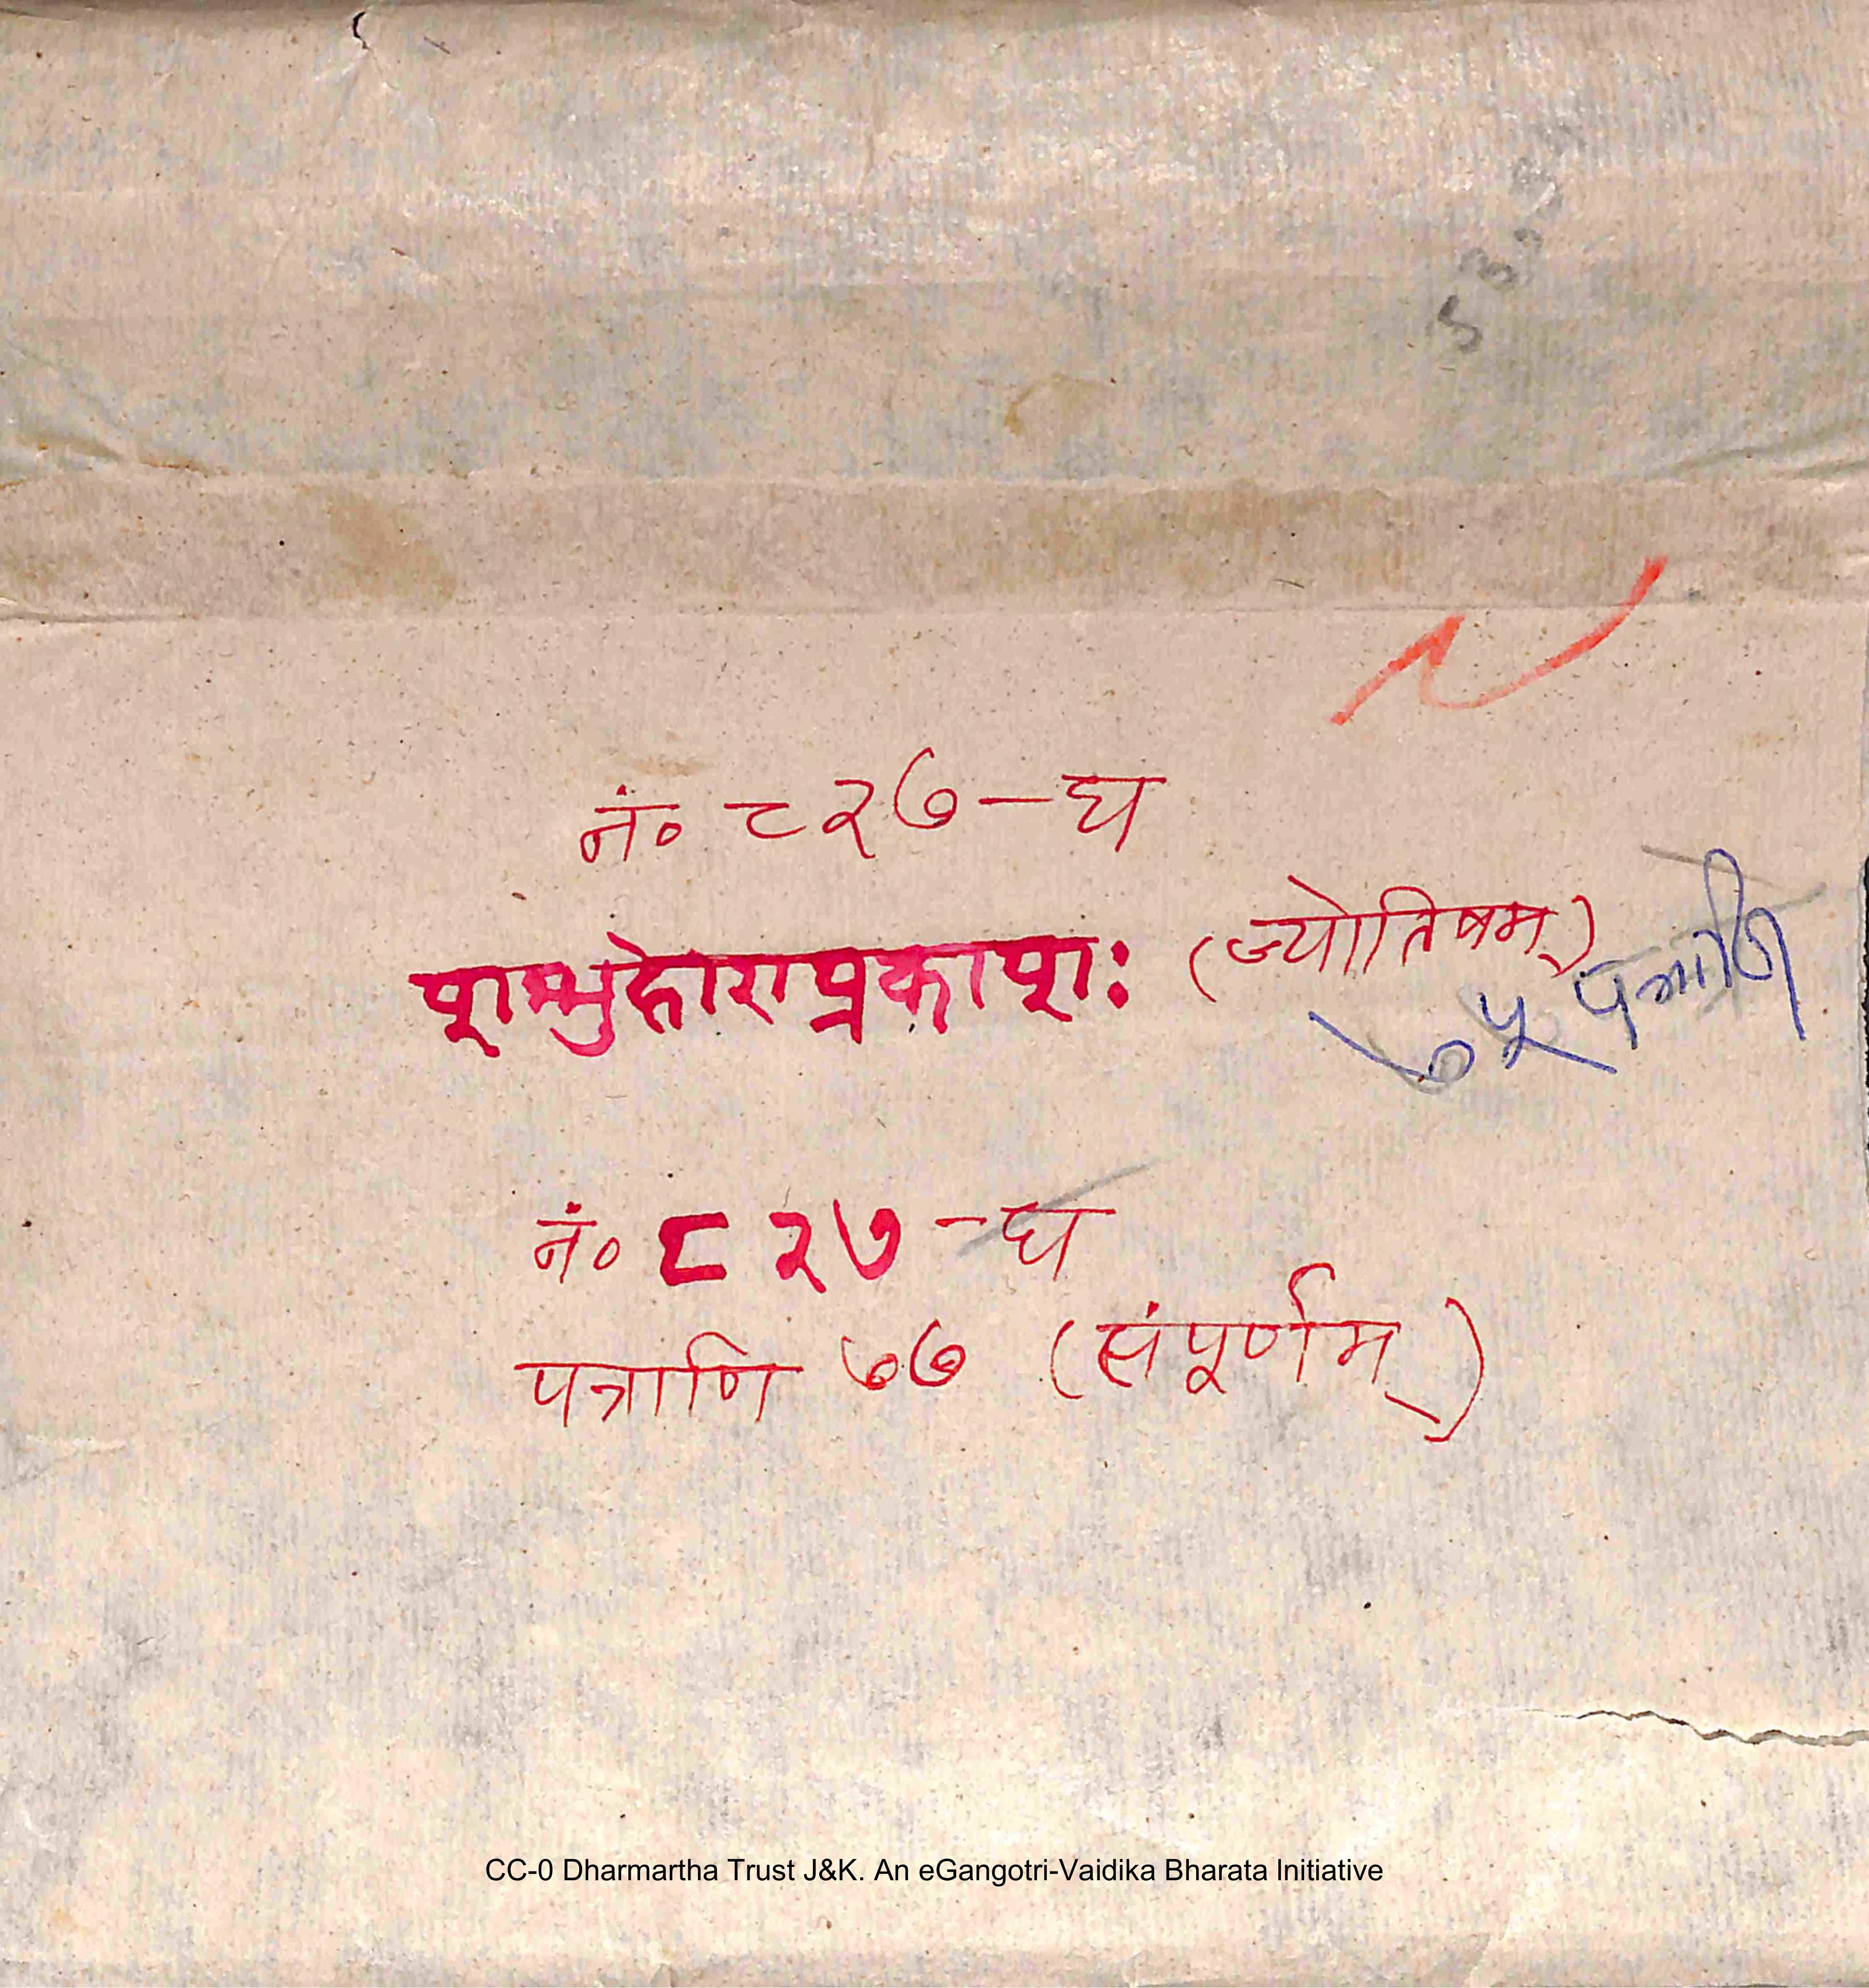 नं० ८२७-घ
शम्भुहोराप्रकाशः (ज्योतिषम्)
७५ पत्राणि
नं० ८२७-घ
पत्राणि ७७ (संपूर्णम्)
CC-0 Dharmartha Trust J&K. An eGangotri-Vaidika Bharata Initiative